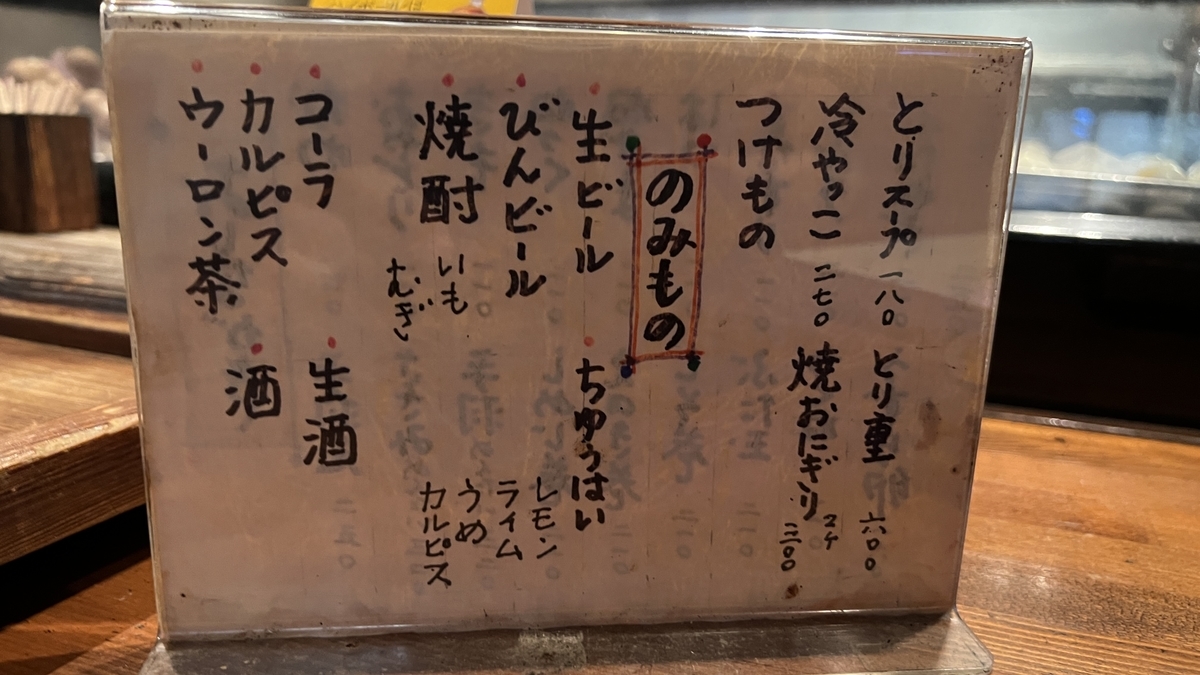 とりスープ 一八〇
とり重 六〇〇
冷やっこ 二七〇
焼おにぎり 2ケ 三〇〇
つけもの
のみもの
・生ビール
・ちゅうはい
レモン
ライム
うめ
カルピス
・びんビール
・焼酎
いも
むぎ
・コーラ
・生酒
・カルピス
・酒
・ウーロン茶